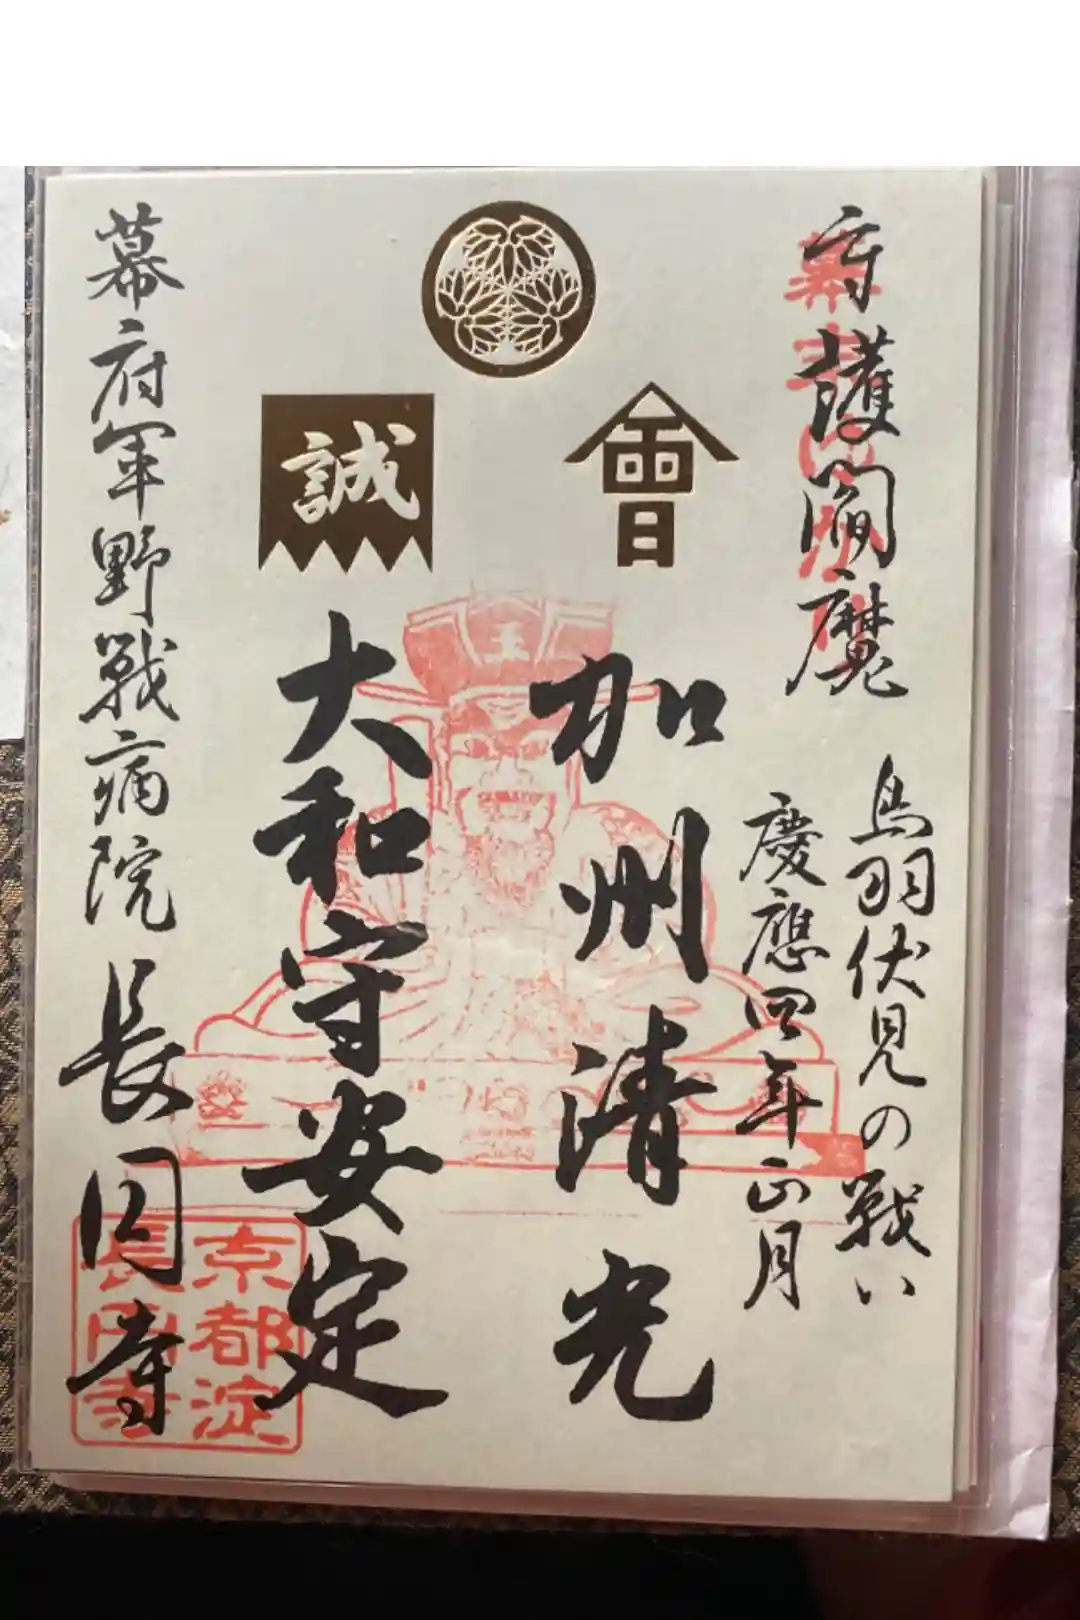 守護閻魔
鳥羽伏見の戦い
慶應四年正月
會
誠
加州清光
大和守安定
王
幕府軍野戦病院 長円寺
京都淀
長円寺